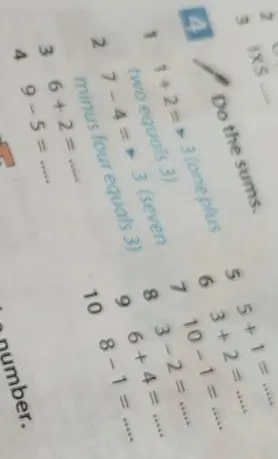 2
3 IX5 .....
4 Do the sums.
1 1 + 2 = ▸ 3 (one plus
two equals 3)
2 7 – 4 = ▸ 3 (seven
minus four equals 3)
3 6 + 2 = .....
4 9 – 5 = .....
5 5 + 1 = .....
6 3 + 2 = .....
7 10 – 1 = .....
8 3 – 2 = .....
9 6 + 4 = .....
10 8 – 1 = .....
number.